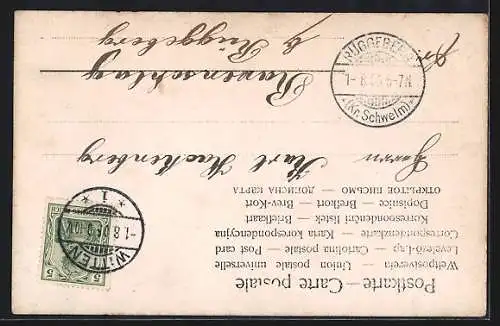 Postkarte — Carte postale
Weltpostverein — Union postale universelle
Levelező-Lap — Cartolina postale — Post card
Correspondenzkarte — Karta korespondencyjna
Korespondenční lístek — Briefkaart
Dopisnice — Brefkort — Brev-Kort
ОТКРЫТОЕ ПИСЬМО — ДОПИСНА КАРТА
Herrn Karl Hackenberg
Ravenschlag
b. Rüggeberg
WITTEN
* 1 *
5 5
RÜGGEBERG
(Kr. Schwelm)